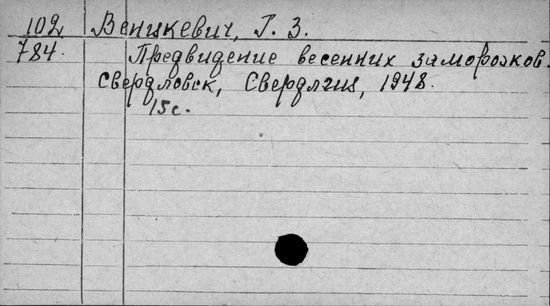 102 Веницкевич, Г. З.
784. Предвидение весенних заморозков.
Свердловск, Свердлгиз, 1948.
15 с.